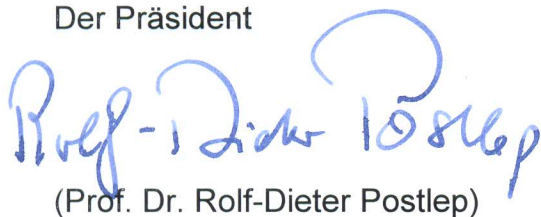 Der Präsident
Rolf-Dieter Postlep
(Prof. Dr. Rolf-Dieter Postlep)